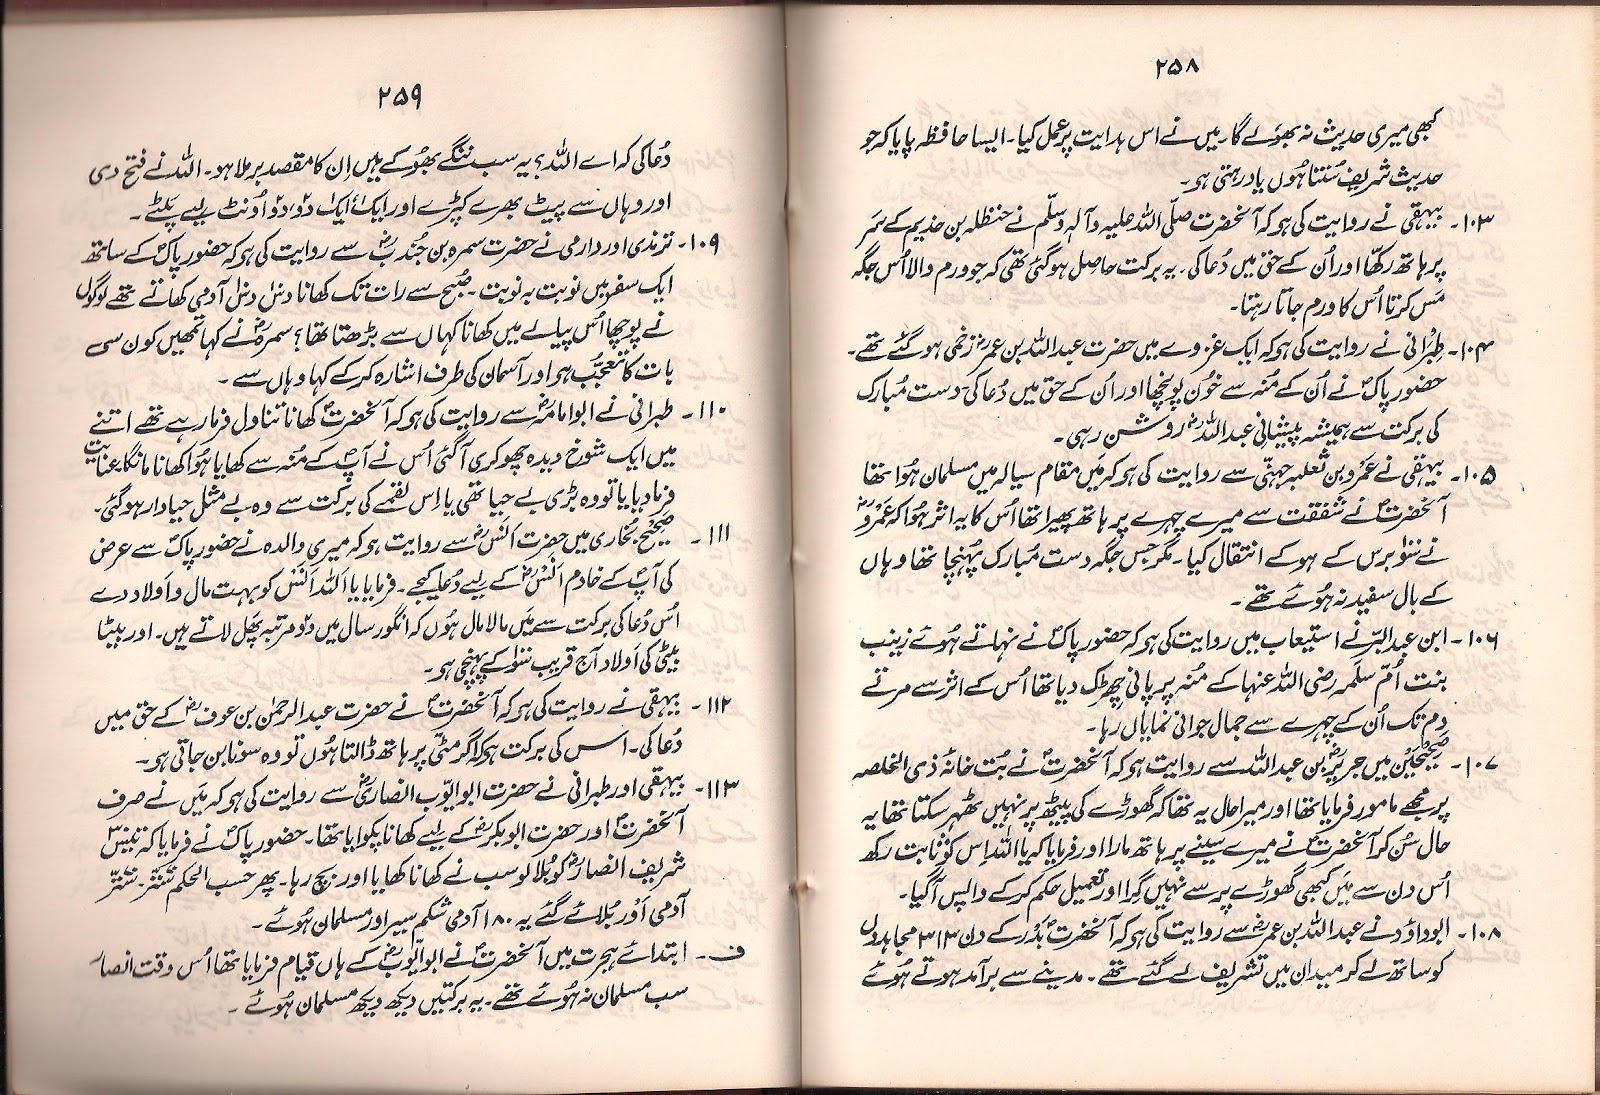 ۲۵۸
کبھی میری حدیث نہ بھولے گا۔ میں نے اس ہدایت پر عمل کیا۔ ایسا حافظہ پایا کہ جو
حدیث شریف سُنتا ہُوں یاد رہتی ہی۔
۱۰۳۔ بیہقی نے روایت کی ہی کہ آنحضرت صلّی اللہ علیہ وآلہٖ وسلّم نے حنظلہ بن حذیم کے سَر
پر ہاتھ رکھّا اور اُن کے حق میں دُعا کی۔ یہ برکت حاصل ہو گئی تھی کہ جو ورم والا اُس جگہ
مَس کرتا اُس کا ورم جاتا رہتا۔
۱۰۴۔ طبرانی نے روایت کی ہی کہ ایک غزوے میں حضرت عبداللہ بن عمرؓ زخمی ہو گئے تھے۔
حضور پاکؐ نے اُن کے مُنہ سے خُون پونچھا اور اُن کے حق میں دُعا کی۔ دست مُبارک
کی برکت سے ہمیشہ پیشانی عبداللہؓ روشن رہی۔
۱۰۵۔ بیہقی نے عمرو بن ثعلبہ جہنی سے روایت کی ہی کہ مَیں مقام سیالہ میں مسلمان ہُوا تھا
آنحضرتؐ نے شفقت سے میرے چہرے پر ہاتھ پھیرا تھا اُس کا یہ اثر ہُوا کہ عَمروؓ
نے سو برس کے ہو کے انتقال کیا۔ مگر جس جگہ دست مُبارک پہُنچا تھا وہاں
کے بال سفید نہ ہُوئے تھے۔
۱۰۶۔ ابن عبدالبرّ نے استیعاب میں روایت کی ہی کہ حضور پاکؐ نے نہاتے ہُوئے زینب
بنت اُمّ سَلَمہ رضی اللہ عنہا کے مُنہ پر پانی چھڑک دیا تھا اُس کے اثر سے مرتے
دم تک اُن کے چہرے سے جمال جوانی نمایاں رہا۔
۱۰۷۔ صحیحین میں جریرؓ بن عبداللہ سے روایت ہی کہ آنحضرتؐ نے بُت خانۂ ذی الخلصہ
پر مجھے مامور فرمایا تھا اور میرا حال یہ تھا کہ گھوڑے کی پیٹھ پر نہیں ٹھہر سکتا تھا یہ
حال سُن کر آنحضرتؐ نے میرے سینے پر ہاتھ مارا اور فرمایا کہ یا اللہ اِس کو ثابت رکھ
اُس دن سے مَیں کبھی گھوڑے پر سے نہیں گرا اور تعمیل حکم کر کے واپس آگیا۔
۱۰۸۔ ابوداؤد نے عبداللہ بن عمرؓ سے روایت کی ہی کہ آنحضرتؐ بَدر کے دن ۳۱۳ مجاہدوں
کو ساتھ لے کر میدان میں تشریف لے گئے تھے۔ مدینے سے برآمد ہوتے ہُوئے
۲۵۹
دُعا کی کہ اے اللہ! یہ سب ننگے بھُوکے ہیں اِن کا مقصد بر ملا ہو۔ اللہ نے فتح دی
اور وہاں سے پیٹ بھرے کپڑے اور ایک ایک دو دو اُونٹ لیے پلٹے۔
۱۰۹۔ ترمذی اور دارمی نے حضرت سمرہ بن جُندبؓ سے روایت کی ہی کہ حضور پاکؐ کے ساتھ
ایک سفر میں نوبت بہ نوبت۔ صُبح سے رات تک کھانا دس دس آدمی کھاتے تھے لوگوں
نے پوچھا اُس پیالے میں کھانا کہاں سے بڑھتا تھا؟ سمرہؓ نے کہا تمھیں کون سی
بات کا تعجّب ہی اور آسمان کی طرف اشارہ کر کے کہا وہاں سے۔
۱۱۰۔ طبرانی نے ابوامامہؓ سے روایت کی ہی کہ آنحضرتؐ کھانا تناول فرما رہے تھے اتنے
میں ایک شوخ دیدہ چھوکری آگئی اُس نے آپؐ کے مُنہ سے کھایا ہُوا کھانا مانگا۔ عنایت
فرما دیا یا تو وہ بڑی بے حیا تھی یا اِس لقمے کی برکت سے وہ بے مثل حیادار ہو گئی۔
۱۱۱۔ صحیح بُخاری میں حضرت انسؓ سے روایت ہی کہ میری والدہ نے حضور پاکؐ سے عرض
کی آپؐ کے خادم انسؓ کے لیے دُعا کیجے۔ فرمایا یا اللہ انَس کو بہت مال و اَولاد دے
اُس دُعا کی برکت سے مَیں مالا مال ہُوں کہ انگور سال میں دو مرتبہ پھل لاتے ہیں۔ اور بیٹا
بیٹی کی اَولاد آج قریب سو کے پہنچی ہی۔
۱۱۲۔ بیہقی نے روایت کی ہی کہ آنحضرتؐ نے حضرت عبدالرحمٰن بن عوفؓ کے حق میں
دُعا کی۔ اس کی برکت ہی کہ اگر مٹّی پر ہاتھ ڈالتا ہُوں تو وہ سونا بن جاتی ہی۔
۱۱۳۔ بیہقی اور طبرانی نے حضرت ابوایّوب انصاریؓ سے روایت کی ہی کہ مَیں نے صرف
آنحضرتؐ اور حضرت ابوبکرؓ کے لیے کھانا پکوایا تھا۔ حضور پاکؐ نے فرمایا کہ تیس
شریف انصارؓ کو بُلا لو سب نے کھانا کھایا اور بچ رہا۔ پھر حسب الحکم ستّر۔ ستّر
آدمی اَور بُلائے گئے یہ ۱۸۰ آدمی شکم سیر اور مسلمان ہُوئے۔
ف۔ ابتدائے ہجرت میں آنحضرتؐ نے ابوایّوبؓ کے ہاں قیام فرمایا تھا اُس وقت انصار
سب مسلمان نہ ہُوئے تھے۔ یہ برکتیں دیکھ دیکھ مسلمان ہُوئے۔